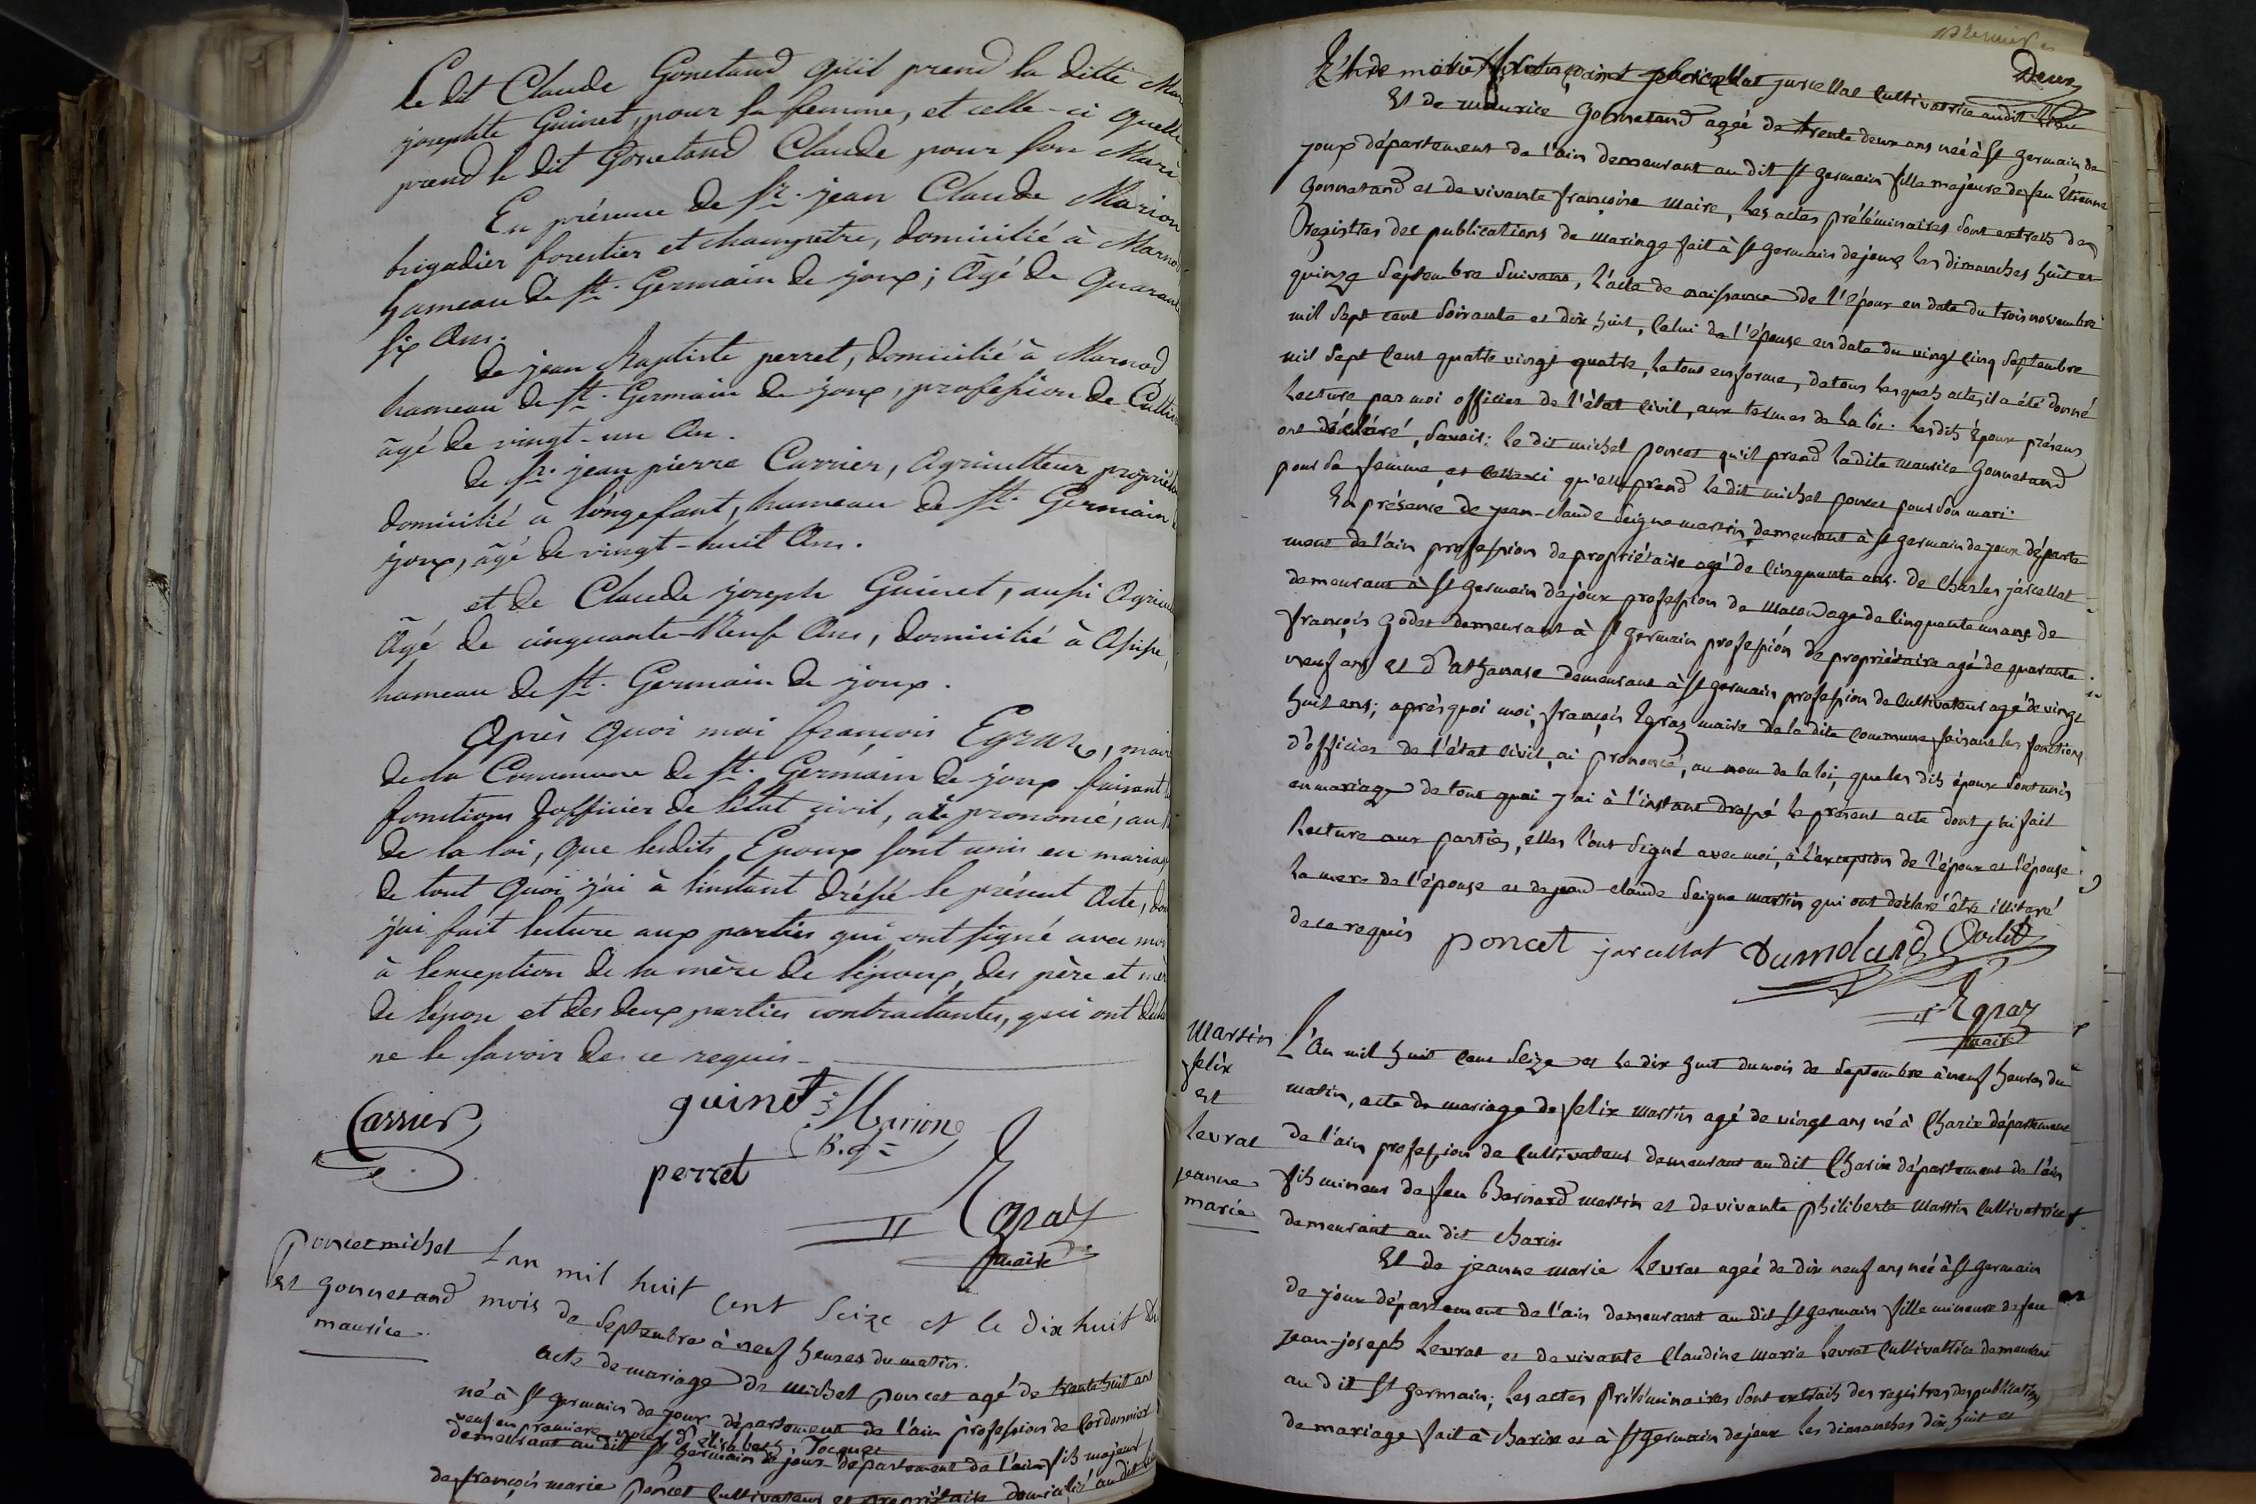 le dit Claude Gonetand qu'il prend la ditte Mar
josephte Guinet, pour sa femme, et celle-ci quelle
prend le dit Gonetand Claude pour son Mari
En présence de sr. jean Claude Marion
brigadier forestier et champetre, domicilié à Marnod
hameau de st. Germain de joux; âgé de quarant
six Ans.
de jean Baptiste perret, domicilié à Marnod
hameau de st. Germain de joux, profession de Cultiv
âgé de vingt-un An.
de sr. jean pierre Carrier, Agriculteur propriét
domicilié à longefant, hameau de st. Germain
joux, âgé de vingt-huit Ans.
et de Claude joseph Guinet, aussi Agricu
âgé de cinquante-Neuf Ans, domicilié à
hameau de st. Germain de joux.
Après quoi moi françois Egraz, maire
de la Commune de st. Germain de joux faisant
fonctions d'officier de l'état civil, ai prononcé, au
de la loi, que lesdits Epoux sont unis en mariag
de tout quoi j'ai à l'instant dréssé le présent Acte, don
j'ai fait lecture aux parties qui ont signé avec moi
à l'exception de la mère de l'époux, des père et mèr
de l'épouse et des deux parties contractantes, qui ont
ne le savoir de ce requis
Carrier guinet Marion
B.g
perret Egraz
maire
poncet michel
et gonnetand
maurice
Lan mil huit cent seize et le dix huit du
mois de septembre à neuf heures du matin.
acte de mariage de michel poncet agé de trente huit ans
né à st germain de joux département de l'ain profession de cordonnier
veuf en premiere noce d'elisabeth
demeurant au dit st germain de joux departement de l'ain fils majeur
de françois marie poncet cultivateur et propriétaire domicilié au dit lieu
Deux
Et de marie jarcellat cultivatrice audit lieu
Et de maurice gonnetand agée de trente deux ans née à st germain de
joux département de l'ain demeurant au dit st germain fille majeure de feu Etienne
gonnetand et de vivante françoise maire, les actes préléminaires sont extraits des
Registres des publications de mariage fait à st germain dejoux les dimanches huit et
quinze septembre suivant, l'acte de naissance de l'époux en date du trois novembre
mil sept cent soixante et dix huit, celui de l'épouse en date du vingt cinq septembre
mil sept cent quatre vingt quatre, le tout en forme, de tous lesquels actes, il a été donné
lecture par moi officier de l'état civil, aux termes de la loi. les dits époux présens
ont déclaré, savoir: le dit michel poncet qu'il prend ladite maurice gonnetand
pour sa femme et celle-ci qu'elle prend le dit michel poncet pour son mari.
En présence de jean-claude seigne martin, demeurant à st germain de joux départe
ment de l'ain profession de propriétaire agé de cinquante ans. de Charles jarcellat
demeurant à st germain dejoux profession de macon agé de cinquante un ans de
françois godet demeurant à st germain profession de propriétaire agé de quarante
neuf ans et d'athanase demeurant à st germain profession de cultivateur agé de vingt
huit ans; après quoi moi, françois Egraz maire de la dite commune faisant les fonctions
d'officier de l'état civil, ai prononcé, au nom de la loi, que les dits époux sont unis
en mariage de tout quoi j'ai à l'instant dressé le présent acte dont j'ai fait
lecture aux parties, elles l'ont signé avec moi, à l'exception de l'époux et l'épouse
la mere de l'épouse et de jean-claude seigne martin qui ont déclaré être illitaré
de ce requis poncet jarcellat
Egraz
maire
martin
felix
et
levrat
jeanne
marie
L'an mil huit cent seize et le dix huit du mois de septembre à neuf heures du
matin, acte de mariage de felix martin agé de vingt ans né à Charix département
de l'ain profession de cultivateur demeurant au dit Charix département de l'ain
fils mineur de feu Bernard martin et de vivante philiberte martin cultivatrice
demeurant au dit charix
Et de jeanne marie levrat agée de dix neuf ans née à st germain
de joux département de l'ain demeurant au dit st germain fille mineure de feu
jean-joseph levrat et de vivante claudine marie levrat cultivatrice demeurant
au dit st germain; les actes préléminaires sont extraits des registres des publications
de mariage fait à charix et à st germain dejoux les dimanches dix huit et